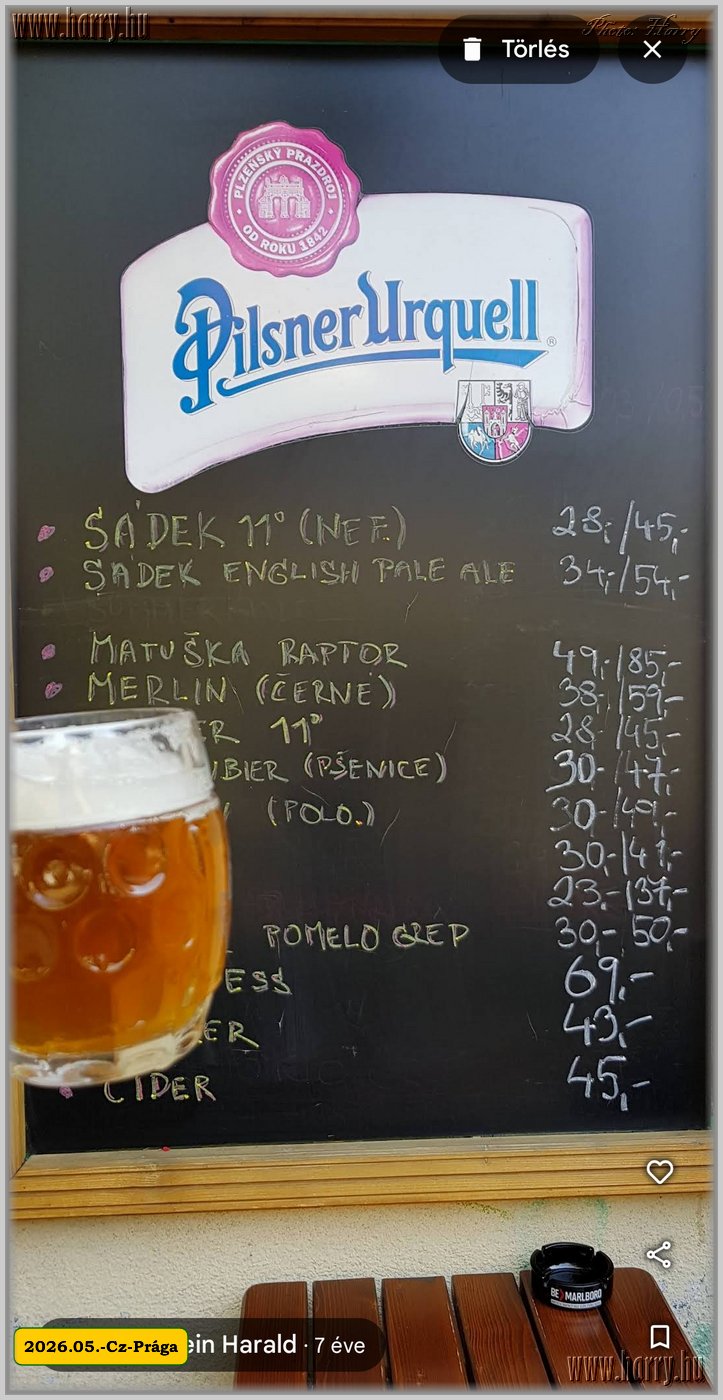 www.harry.hu
Photo: Harry
Törlés
PLZEŇSKÝ PRAZDROJ
OD ROKU 1842
Pilsner Urquell
®
SÁDEK 11° (NEF.) 28,-/45,-
SÁDEK ENGLISH PALE ALE 34,-/54,-
MATUŠKA RAPTOR 49,-/85,-
MERLIN (ČERNÉ) 38,-/59,-
ER 11° 28,-/45,-
UBIER (PŠENICE) 30,-/47,-
(POLO.) 30,-/49,-
30,-/41,-
23,-/37,-
POMELO GREP 30,- 50,-
ESS 69,-
ER 43,-
CIDER 45,-
BE MARLBORO
2026.05.-Cz-Prága
ein Harald · 7 éve
www.harry.hu